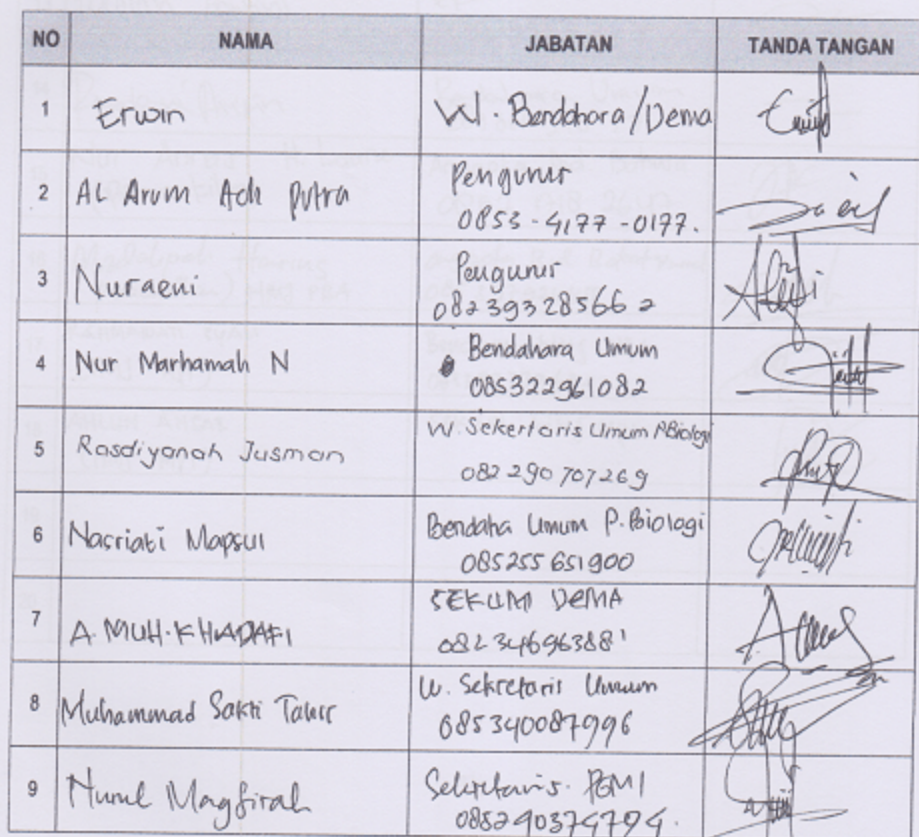 NO NAMA JABATAN TANDA TANGAN
1 Erwin W. Bendahara/Dema
2 AL Arum Adi Putra Pengurus
0853-4177-0177.
3 Nuraeni Pengurus
082393285662
4 Nur Marhamah N Bendahara Umum
085322961082
5 Rasdiyanah Jusman W. Sekertaris Umum P.Biologi
082290707269
6 Nasriati Mapsul Bendaha Umum P.Biologi
085255651900
7 A. MUH. KHADAFI SEKUM DEMA
082346963881
8 Muhammad Sakti Tahir W. Sekretaris Umum
085340087996
9 Nurul Magfirah Sekretaris. PGMI
085240374794.